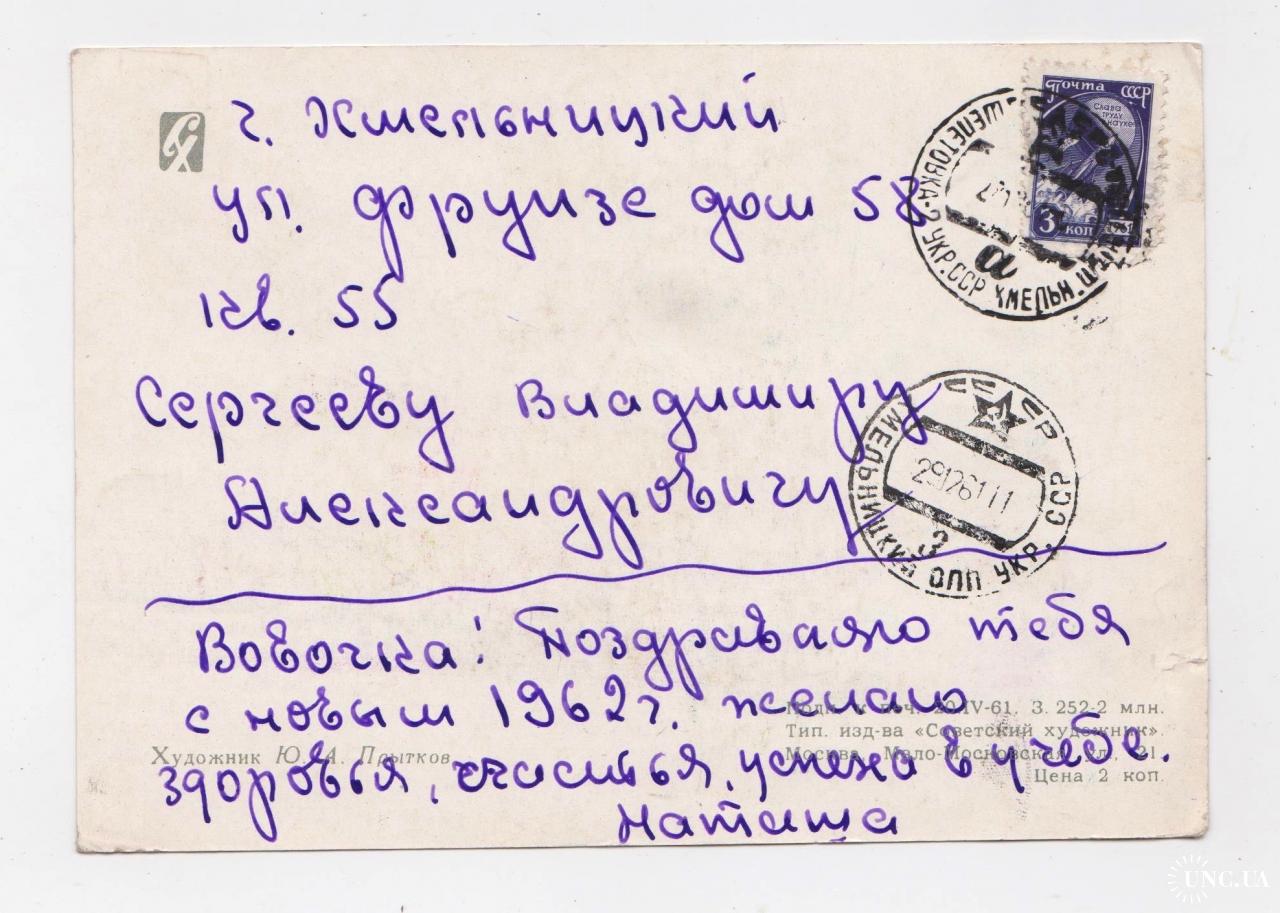 г. Хмельницкий
ул. Фрунзе дом 58
кв. 55
Сергееву Владимиру
Александровичу
Вовочка! Поздравляю тебя
с новым 1962 г. желаю
здоровья, счастья, успеха в учебе.
Наташа
Почта СССР
Слава
труду
и науке
3 коп
ШЕПЕТОВКА-2 УКР.ССР ХМЕЛЬН.
а
СССР
291261 11
ХМЕЛЬНИЦКИЙ ОПП УКР. ССР
3
Художник Ю. А. Прытков
Подп. к печ. 20/IV-61. З. 252-2 млн.
Тип. изд-ва «Советский художник».
Москва, Мало-Московская ул., 21.
Цена 2 коп.
UNC.UA